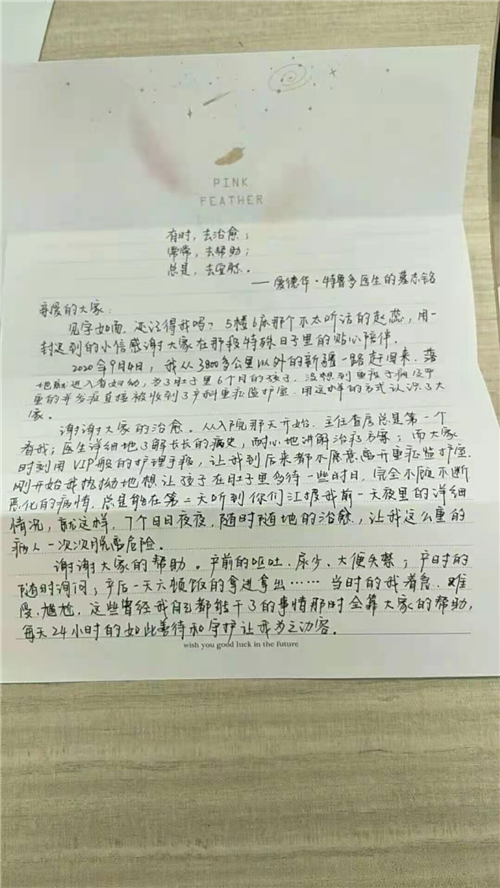 PINK
FEATHER
有时，去治愈；
常常，去帮助；
总是，去安慰。
——爱德华·特鲁多医生的墓志铭
亲爱的大家：
见字如面，还记得我吗？5楼6床那个不太听话的赵蕊，用一
封迟到的小信感谢大家在那段特殊日子里的贴心陪伴。
2020年9月4日，我从3800多公里以外的新疆一路赶回来，落
地就进入省妇幼，为了肚子里6个月的孩子，没想到重孩子病没
重的并多症直接被收到了产科重症监护室，用这样的方式认识了大
家。
谢谢大家的治愈。从入院那天开始，主任查房总是第一个
看我；医生详细地了解长长的病史，耐心地讲解治疗方案；而大家
时刻用VIP般的护理手段，让我到后来都不愿意离开重症监护室。
刚开始我执拗地想让孩子在肚子里多待一些时日，完全不顾不断
恶化的病情，总是能在第二天听到你们汇报我前一天夜里的详细
情况，就这样，7个日日夜夜，随时随地的治愈，让我这么重的
病人一次次脱离危险。
谢谢大家的帮助。产前的呕吐、尿少、大便失禁；产时的
随时询问；产后一天六顿饭的拿进拿出……当时的我着急、难
受、尴尬，这些曾经我自己都能干了的事情那时全靠大家的帮助，
每天24小时的如此善待和守护让我为之动容。
wish you good luck in the future